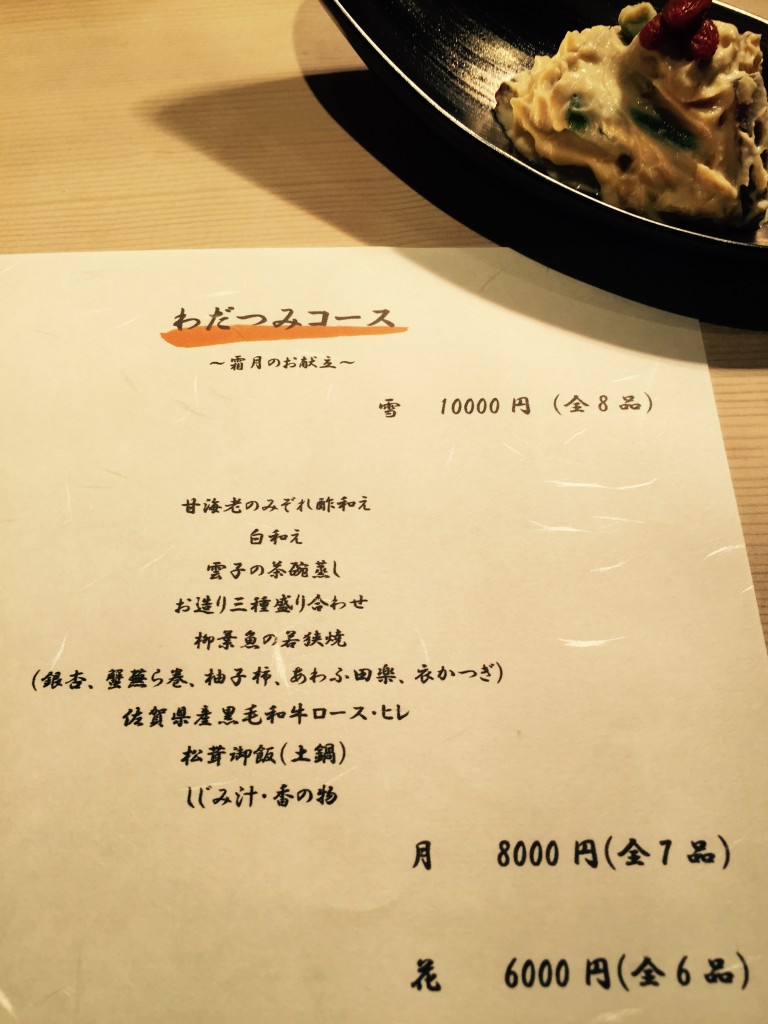 わだつみコース
～霜月のお献立～
雪 10000円 (全8品)
甘海老のみぞれ酢和え
白和え
雲子の茶碗蒸し
お造り三種盛り合わせ
柳葉魚の若狭焼
(銀杏、蟹蕪ら巻、柚子柿、あわふ田楽、衣かつぎ)
佐賀県産黒毛和牛ロース・ヒレ
松茸御飯(土鍋)
しじみ汁・香の物
月 8000円(全7品)
花 6000円(全6品)